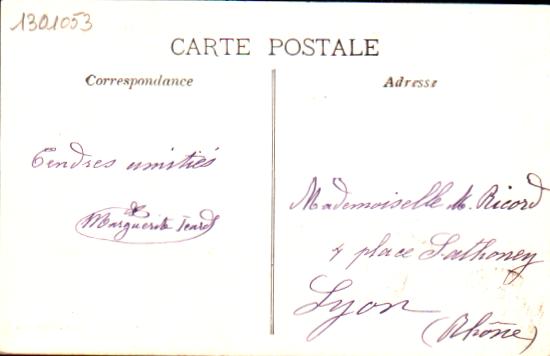 1301053
CARTE POSTALE
Correspondance
Adresse
Tendres amitiés
de
Marguerite
Mademoiselle M. Ricord
4 place Sathoney
Lyon
(Rhône)